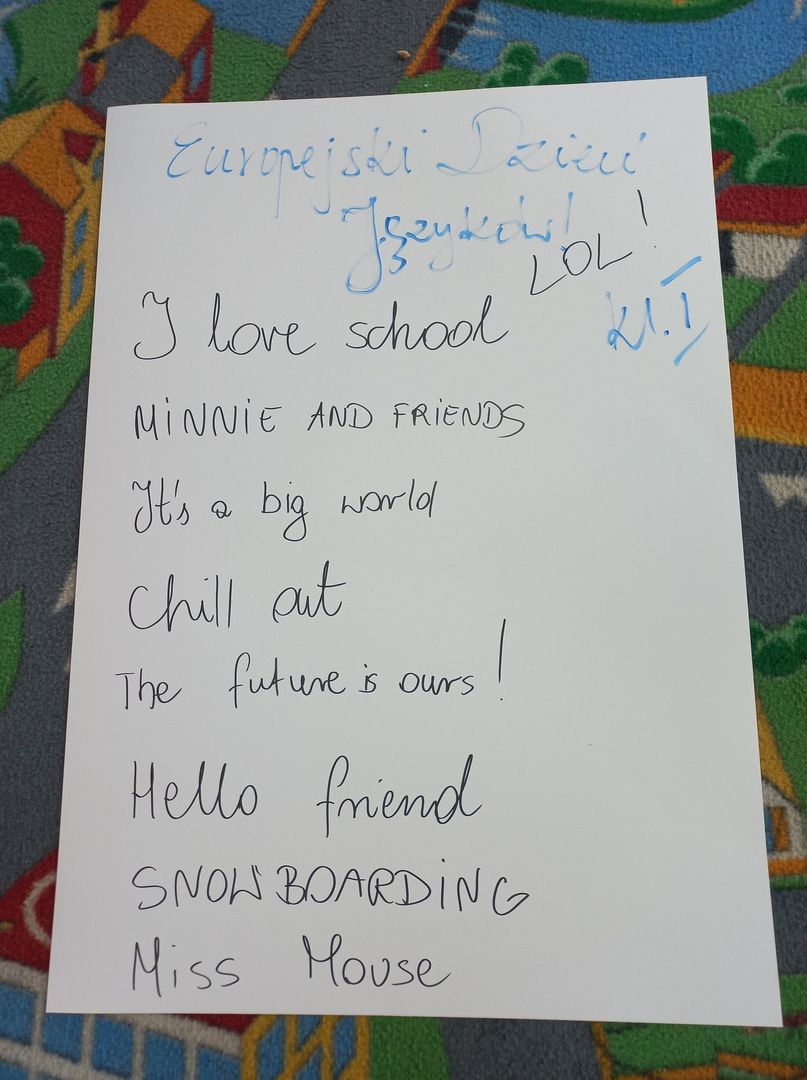 Europejski Dzień
Języków!
LOL!
kl. I
I love school
MiNNiE AND FRiENDS
It's a big world
Chill out
The future is ours!
Hello friend
SNOWBOARDiNG
Miss Mouse